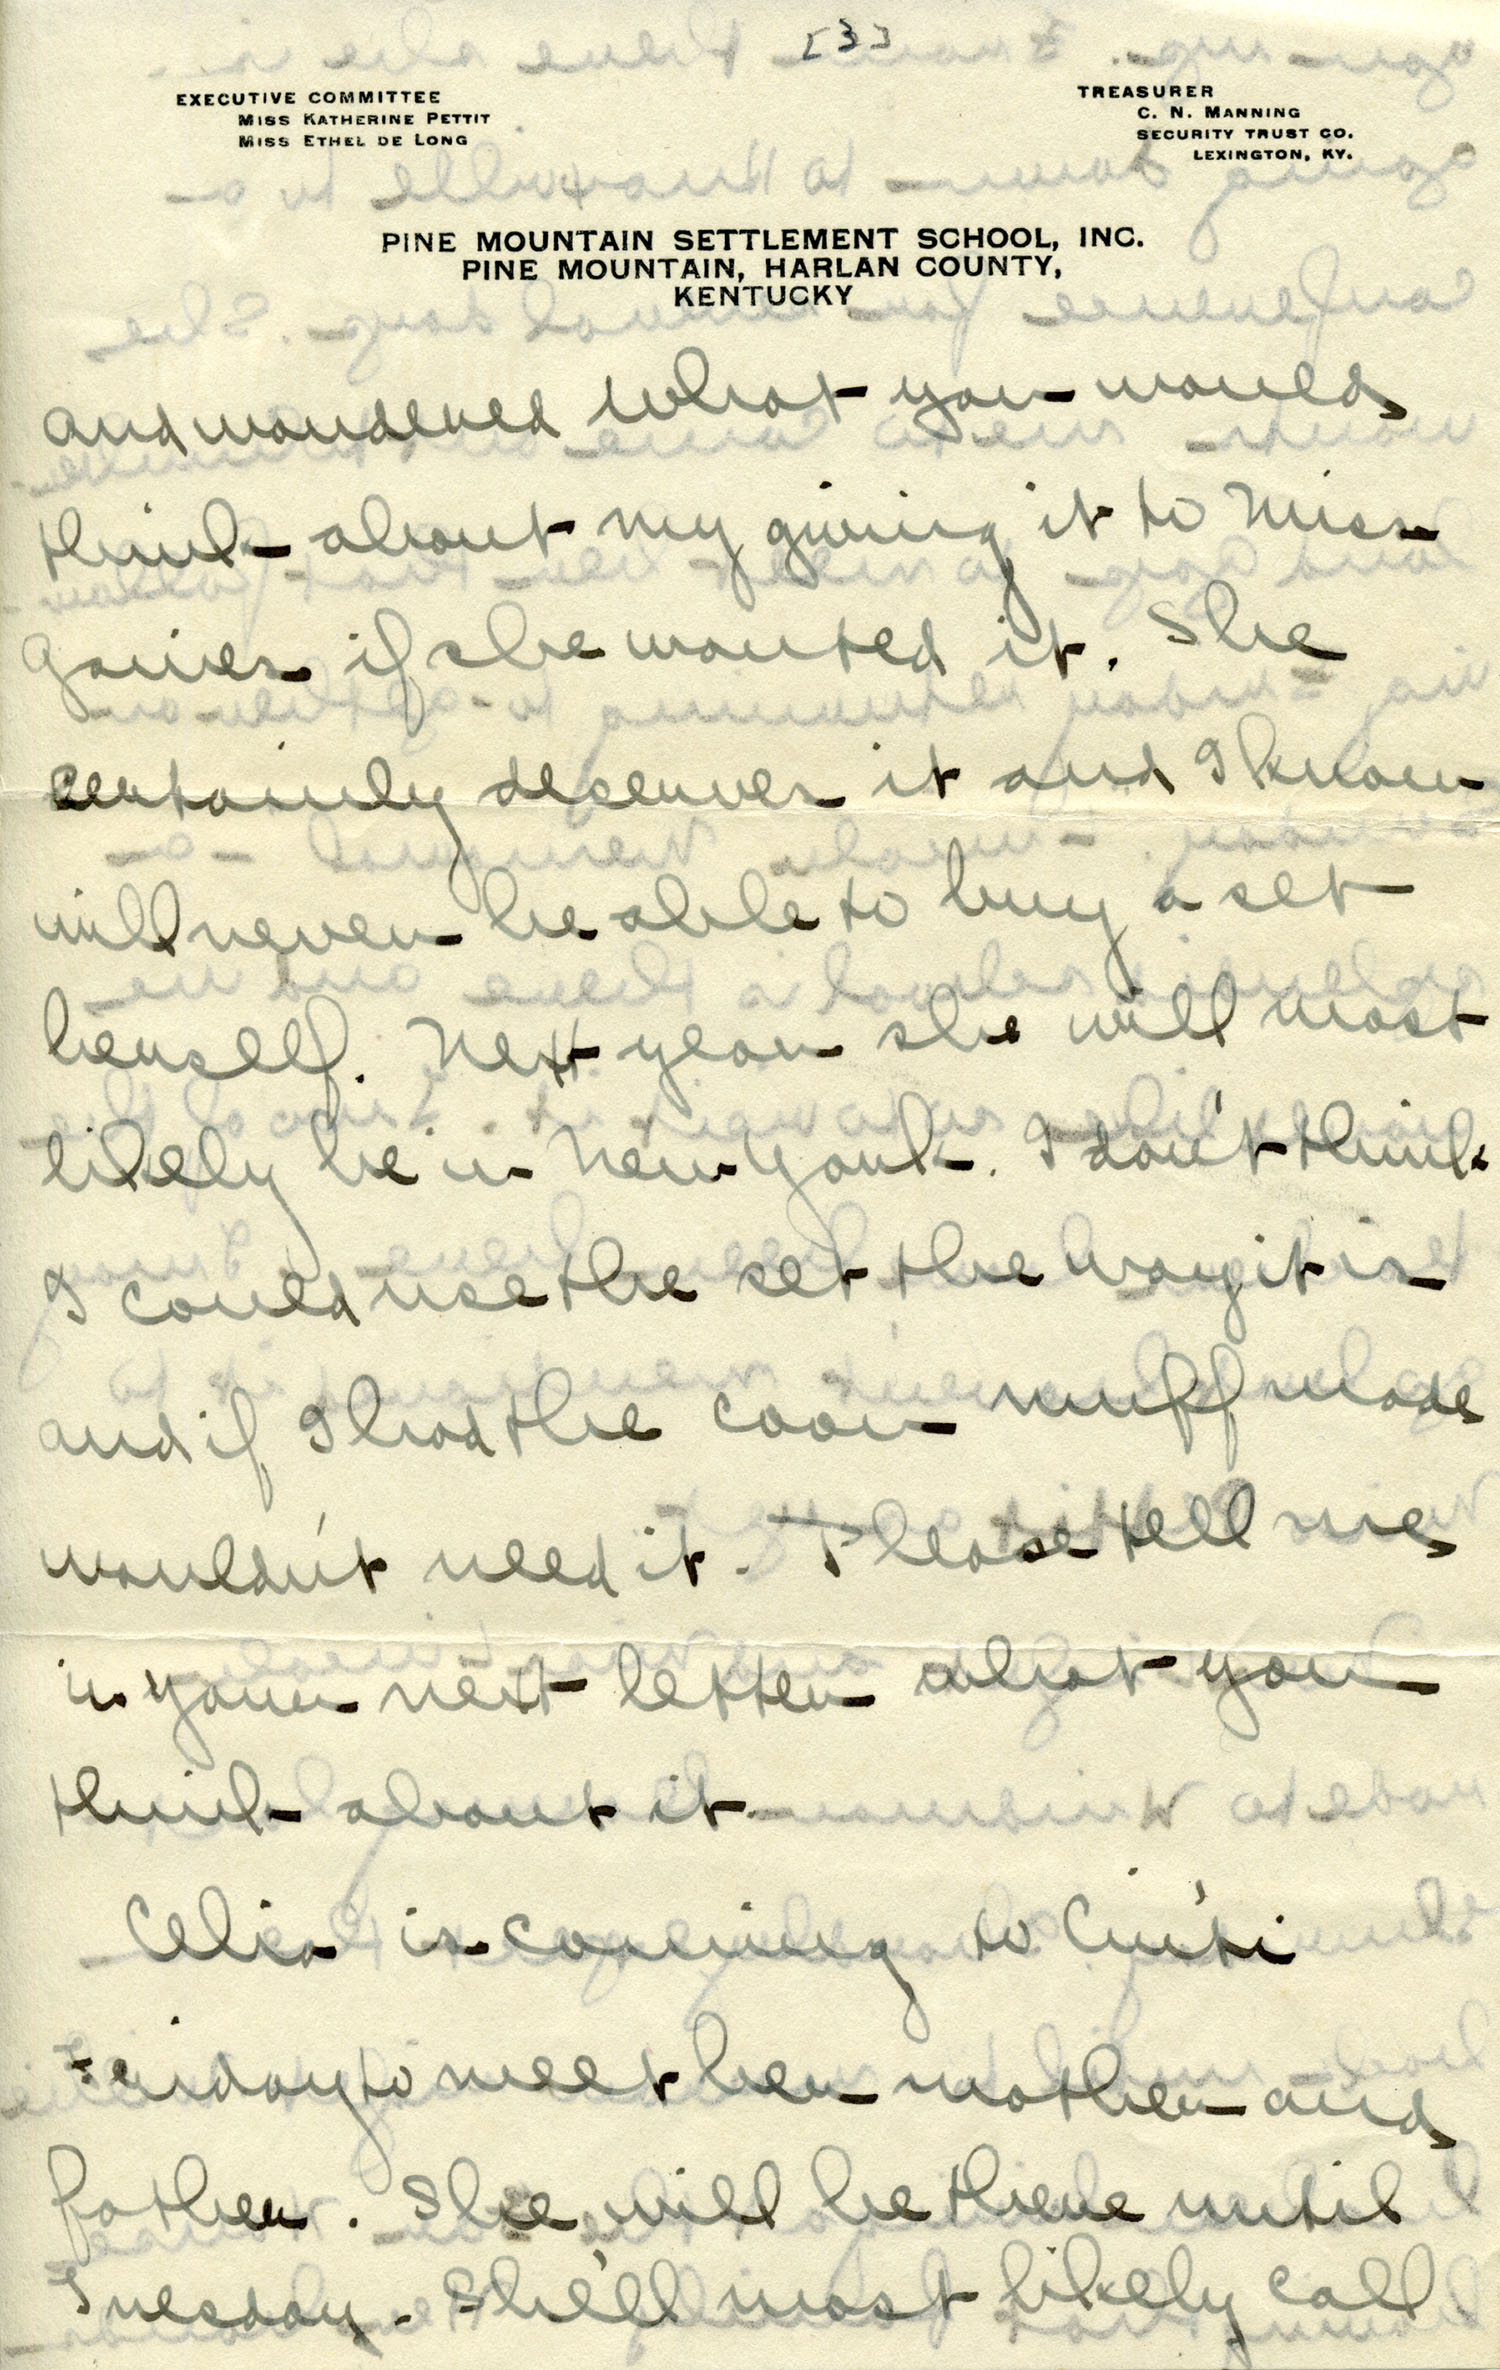 [3]
EXECUTIVE COMMITTEE
MISS KATHERINE PETTIT
MISS ETHEL DE LONG
TREASURER
C. N. MANNING
SECURITY TRUST CO.
LEXINGTON, KY.
PINE MOUNTAIN SETTLEMENT SCHOOL, INC.
PINE MOUNTAIN, HARLAN COUNTY,
KENTUCKY
and wondered what you would
think about my giving it to Miss
Gaines if she wanted it. She
certainly deserves it and I know
will never be able to buy a set
herself. Next year she will most
likely be in New York. I don't think
I could use the set the way it is
and if I had the coon muff made
wouldn't need it. Please tell me
in your next letter what you
think about it.
Celia is coming to Cin'ti
Friday to meet her mother and
father. She will be there until
Tuesday. She'll most likely call